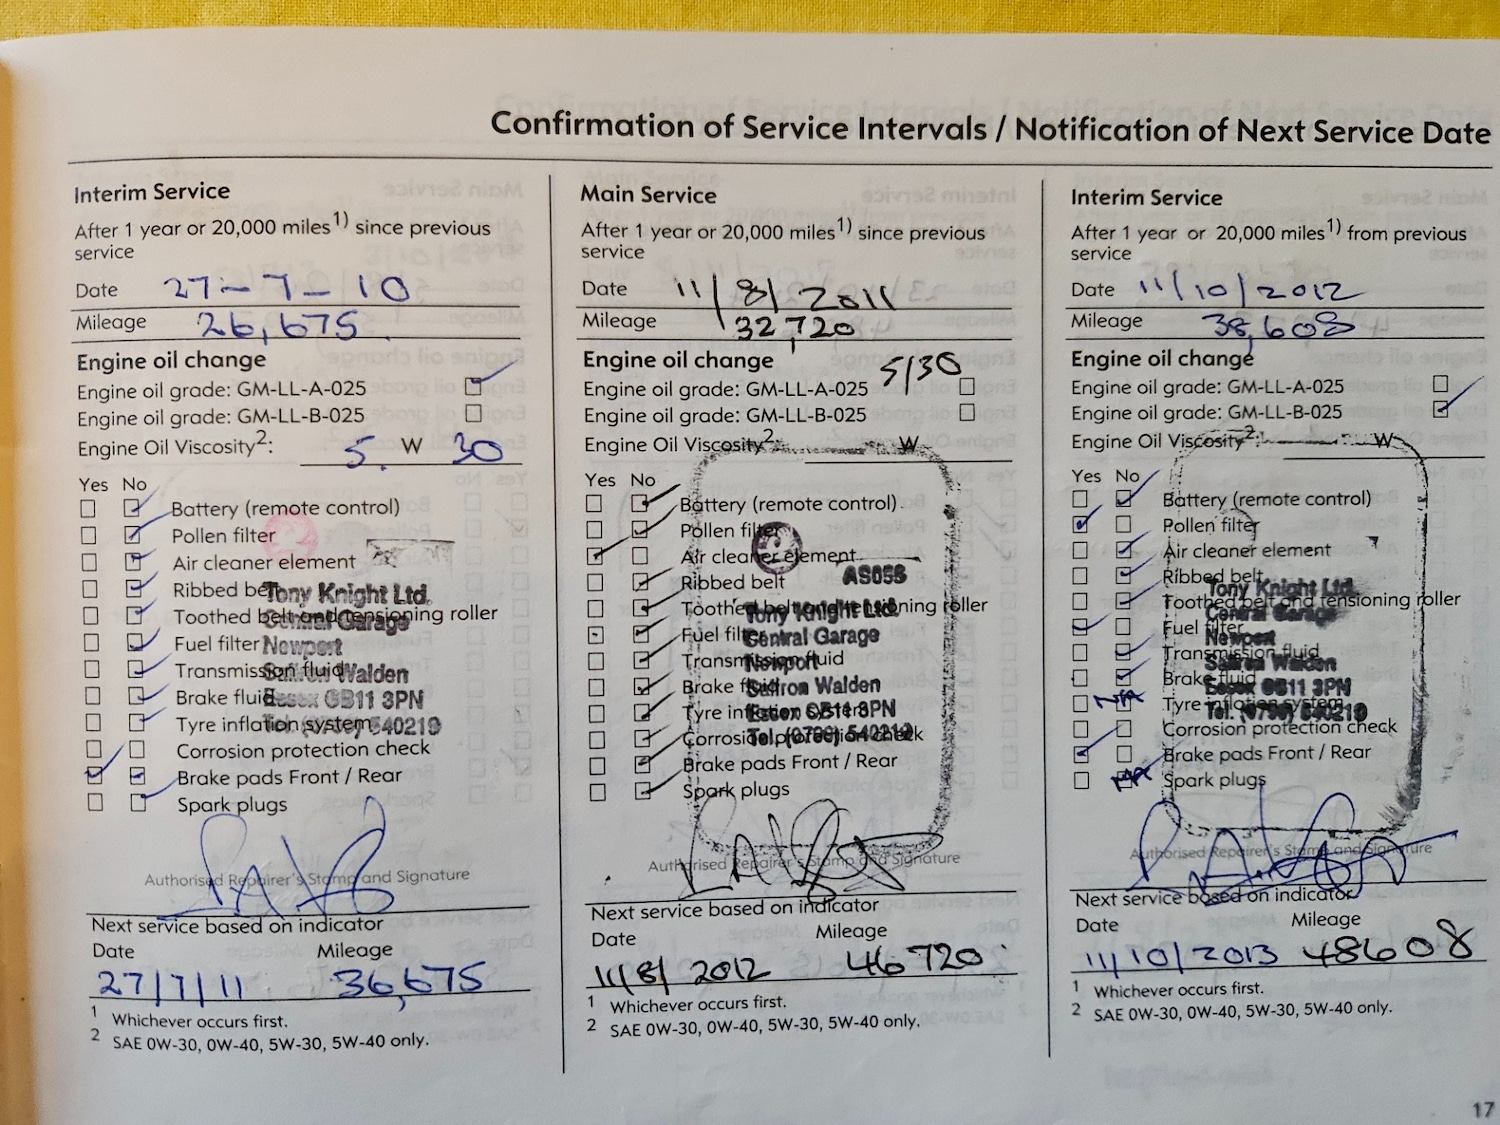 Confirmation of Service Intervals / Notification of Next Service Date
Interim Service
After 1 year or 20,000 miles1) since previous
service
Date 27-7-10
Mileage 26,675
Engine oil change
Engine oil grade: GM-LL-A-025
Engine oil grade: GM-LL-B-025
Engine Oil Viscosity2: 5 W 30
Yes No
Battery (remote control)
Pollen filter
Air cleaner element
Ribbed belt
Toothed belt and tensioning roller
Fuel filter
Transmission fluid
Brake fluid
Tyre inflation system
Corrosion protection check
Brake pads Front / Rear
Spark plugs
Tony Knight Ltd.
Central Garage
Newport
Saffron Walden
Essex CB11 3PN
Tel. (0799) 540219
Authorised Repairer's Stamp and Signature
Next service based on indicator
Date Mileage
27/7/11 36,675
1 Whichever occurs first.
2 SAE 0W-30, 0W-40, 5W-30, 5W-40 only.
Main Service
After 1 year or 20,000 miles1) since previous
service
Date 11/8/2011
Mileage 32,720
Engine oil change 5/30
Engine oil grade: GM-LL-A-025
Engine oil grade: GM-LL-B-025
Engine Oil Viscosity2: W
Yes No
Battery (remote control)
Pollen filter
Air cleaner element
Ribbed belt
Toothed belt and tensioning roller
Fuel filter
Transmission fluid
Brake fluid
Tyre inflation system
Corrosion protection check
Brake pads Front / Rear
Spark plugs
AS058
Tony Knight Ltd.
Central Garage
Newport
Saffron Walden
Essex CB11 3PN
Tel. (0799) 540219
Authorised Repairer's Stamp and Signature
Next service based on indicator
Date Mileage
11/8/2012 46720
1 Whichever occurs first.
2 SAE 0W-30, 0W-40, 5W-30, 5W-40 only.
Interim Service
After 1 year or 20,000 miles1) from previous
service
Date 11/10/2012
Mileage 38,608
Engine oil change
Engine oil grade: GM-LL-A-025
Engine oil grade: GM-LL-B-025
Engine Oil Viscosity2: W
Yes No
Battery (remote control)
Pollen filter
Air cleaner element
Ribbed belt
Toothed belt and tensioning roller
Fuel filter
Transmission fluid
Brake fluid
N/A Tyre inflation system
Corrosion protection check
Brake pads Front / Rear
N/A Spark plugs
Tony Knight Ltd.
Central Garage
Newport
Saffron Walden
Essex CB11 3PN
Tel. (0799) 540219
Authorised Repairer's Stamp and Signature
Next service based on indicator
Date Mileage
11/10/2013 48608
1 Whichever occurs first.
2 SAE 0W-30, 0W-40, 5W-30, 5W-40 only.
17